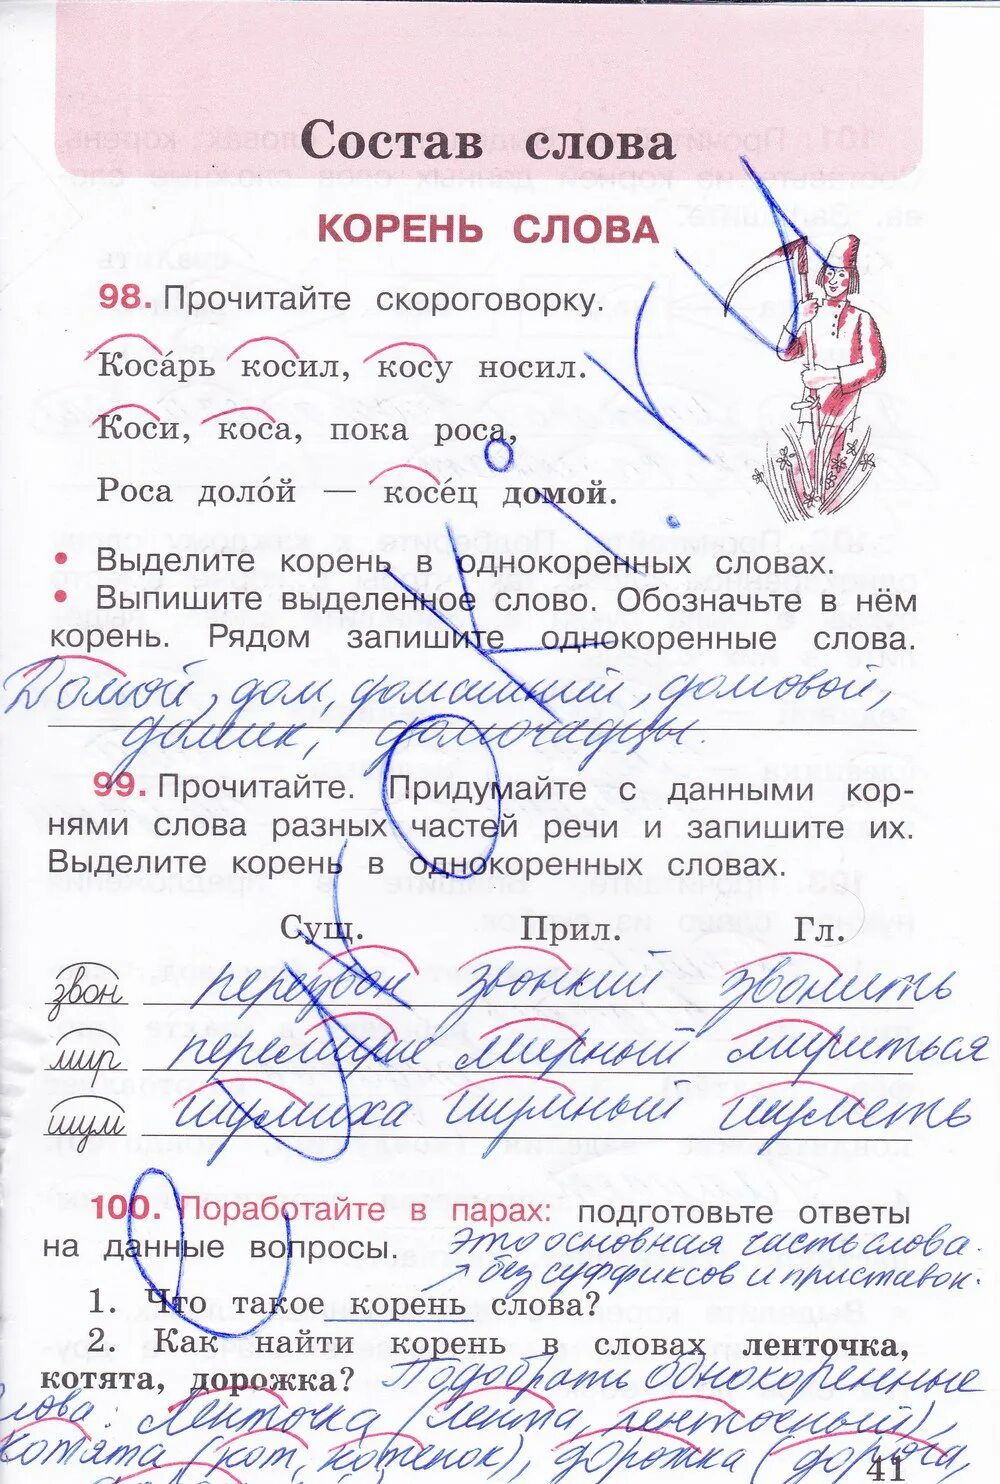 Состав слова
КОРЕНЬ СЛОВА
98. Прочитайте скороговорку.
Коса́рь косил, косу носил.
Коси, коса, пока роса,
Роса доло́й — косе́ц домой.
• Выделите корень в однокоренных словах.
• Выпишите выделенное слово. Обозначьте в нём
корень. Рядом запишите однокоренные слова.
Домой, дом, домашний, домовой,
домик, домочадцы.
99. Прочитайте. Придумайте с данными кор-
нями слова разных частей речи и запишите их.
Выделите корень в однокоренных словах.
Сущ. Прил. Гл.
звон перезвон звонкий звонить
мир перемирие мирный мириться
шум шумиха шумный шуметь
100. Поработайте в парах: подготовьте ответы
на данные вопросы. это основная часть слова
без суффиксов и приставок.
1. Что такое корень слова?
2. Как найти корень в словах ленточка,
котята, дорожка? Подобрать однокоренные
слова: Ленточка (лента, ленточный),
котята (кот, котенок), дорожка (дорога,
41